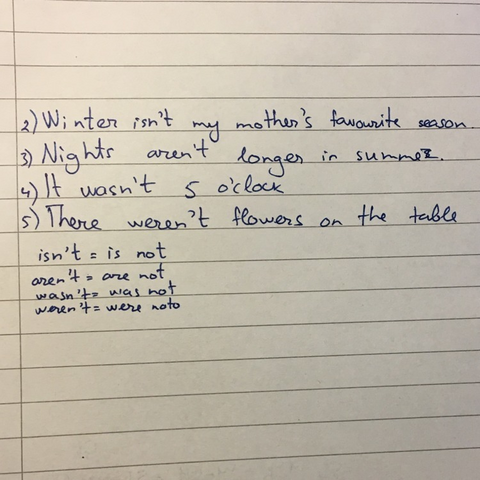 2) Winter isn't my mother's favourite season.
3) Nights aren't longer in summer.
4) It wasn't 5 o'clock
5) There weren't flowers on the table
isn't = is not
aren't = are not
wasn't = was not
weren't = were noto